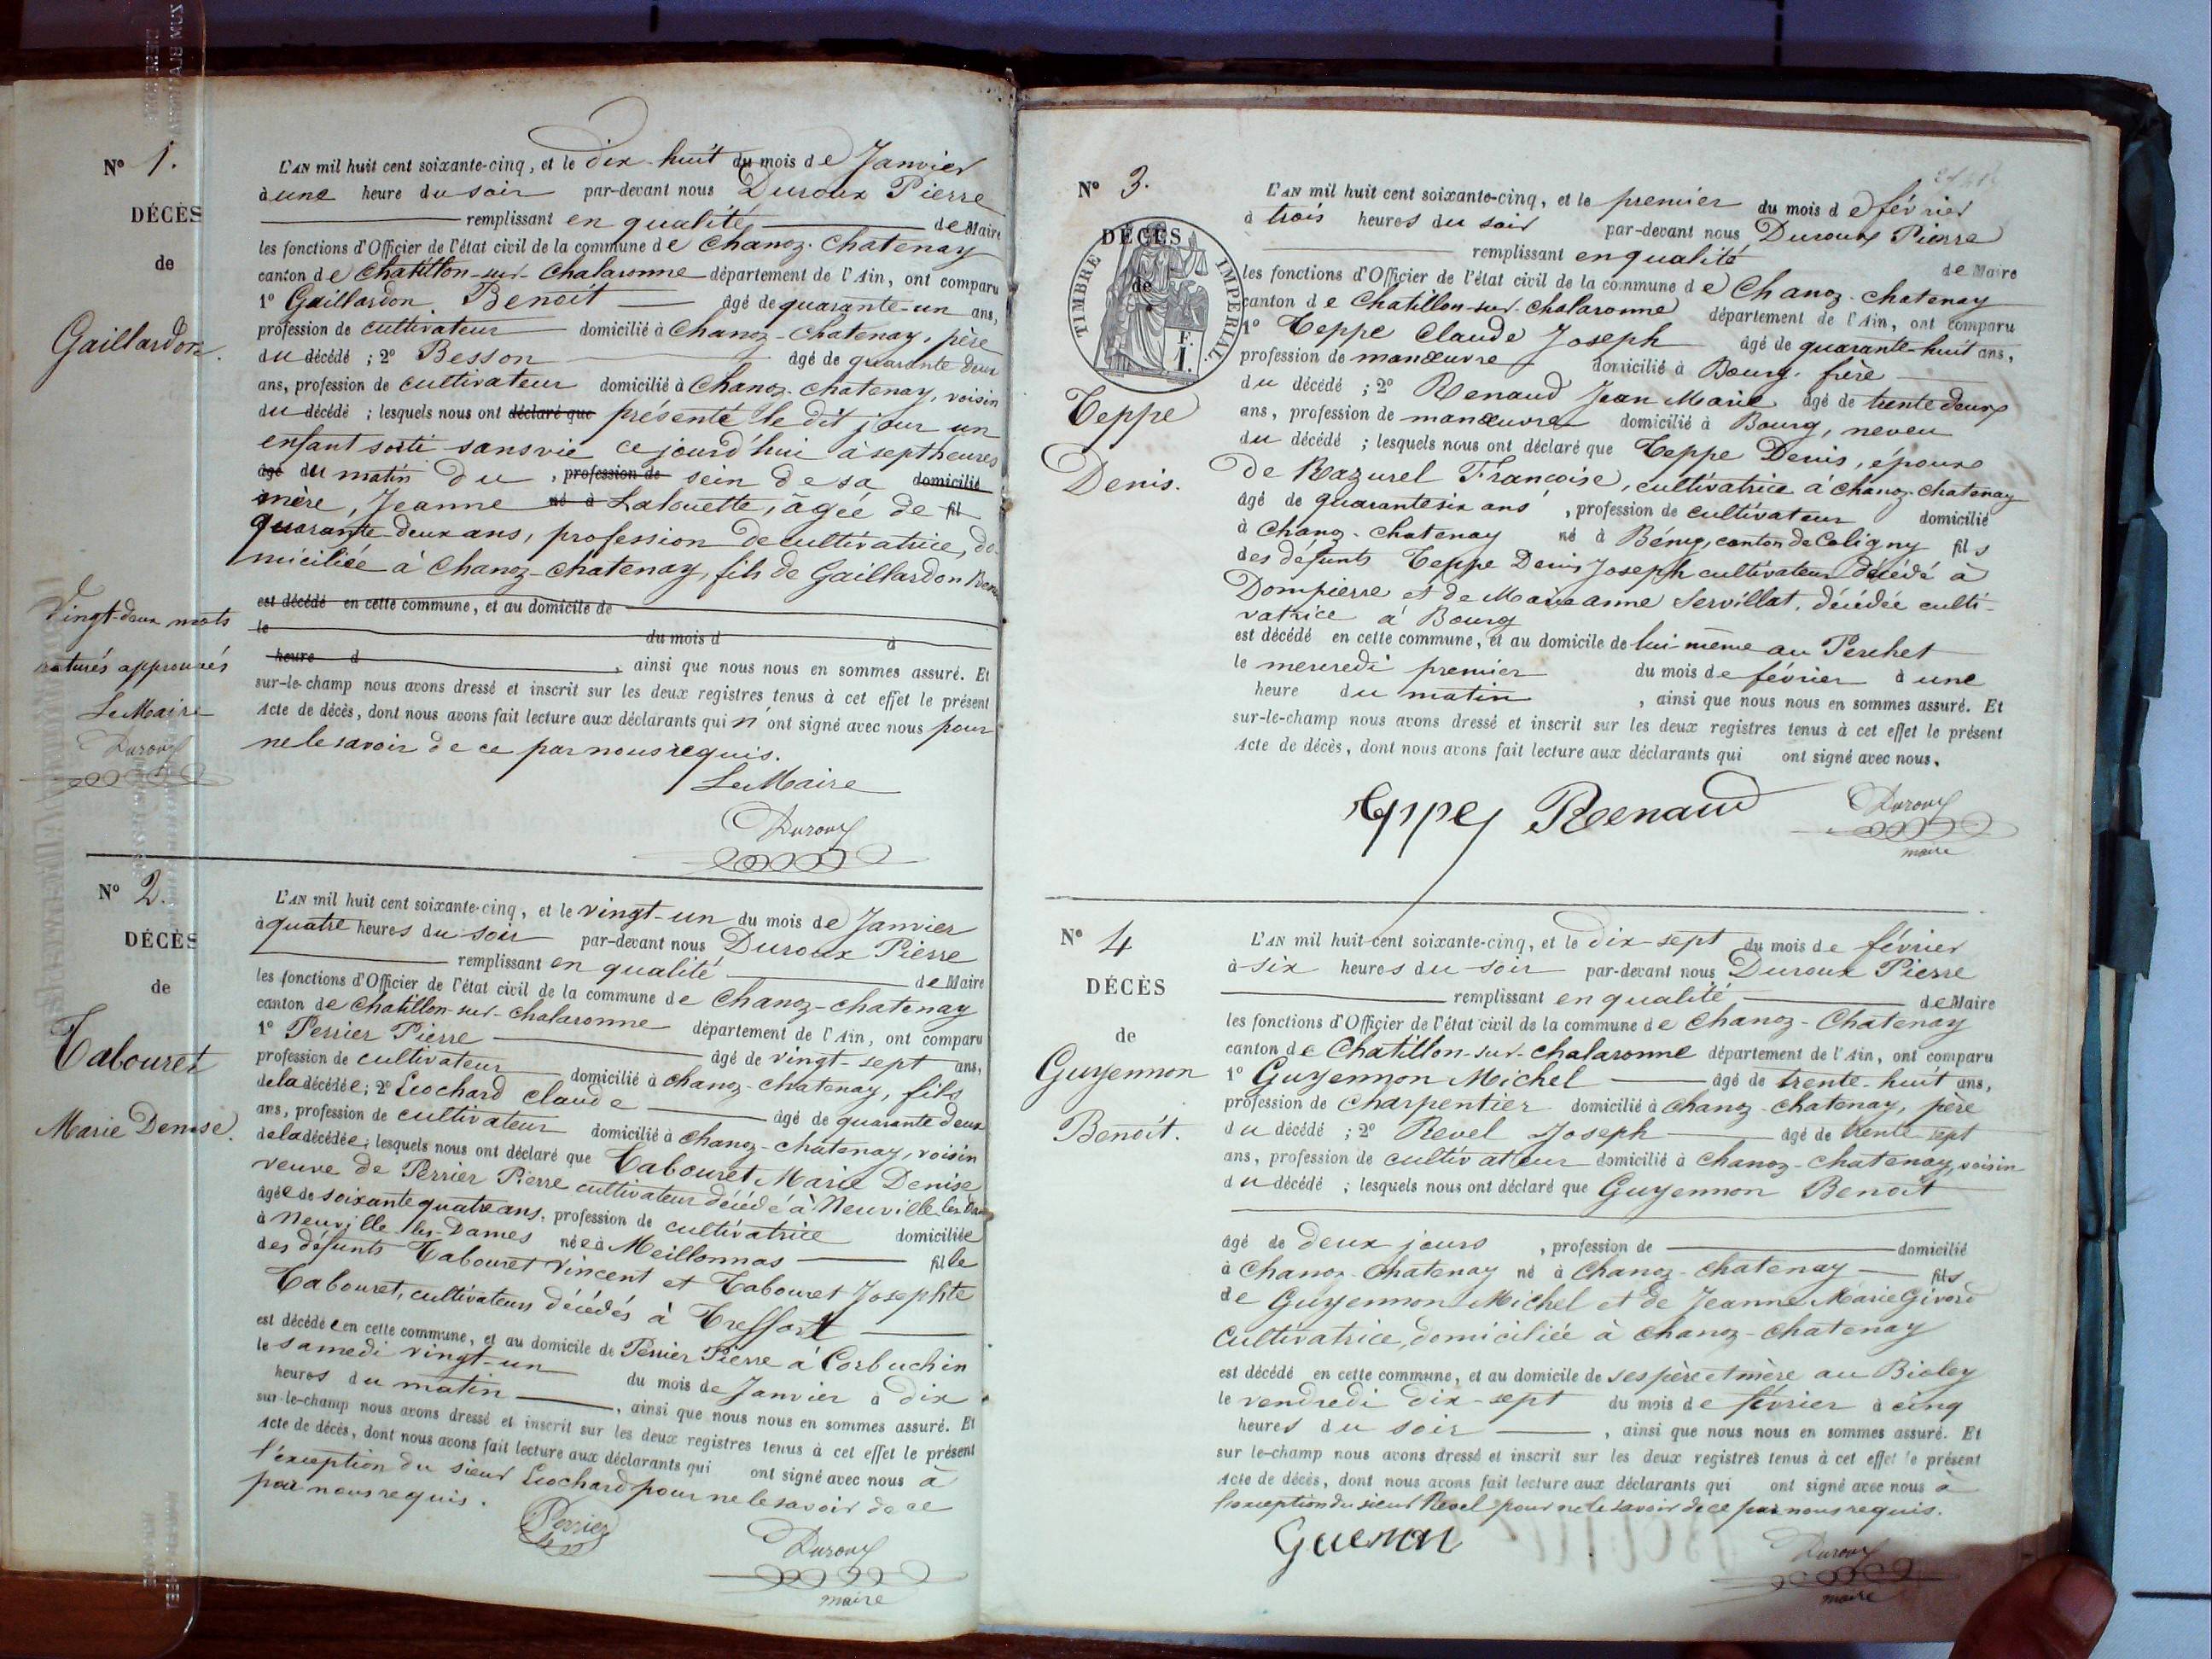 N° 1.
DÉCÈS
de
Gaillardon.
L'AN mil huit cent soixante-cinq, et le dix-huit du mois de Janvier
à une heure du soir par-devant nous Duroux Pierre
remplissant en qualité de Maire
les fonctions d'Officier de l'état civil de la commune de Chanoz-Chatenay
canton de Chatillon-sur-Chalaronne département de l'Ain, ont comparu
1° Gaillardon Benoit âgé de quarante-un ans,
profession de cultivateur domicilié à Chanoz-Chatenay, père
du décédé ; 2° Besson âgé de quarante deux
ans, profession de cultivateur domicilié à Chanoz-chatenay, voisin
du décédé ; lesquels nous ont déclaré que présenté le dit jour un
enfant sorti sans vie ce jourd'hui à sept heures
âgé du matin du , profession de sein de sa domicilié
mère, Jeanne né à Lalouette, âgée de fil
quarante-deux ans, profession de cultivatrice, do-
miciliée à Chanoz-chatenay, fils de Gaillardon
est décédé en cette commune, et au domicile de
le du mois d à
heure d , ainsi que nous nous en sommes assuré. Et
sur-le-champ nous avons dressé et inscrit sur les deux registres tenus à cet effet le présent
Acte de décès, dont nous avons fait lecture aux déclarants qui n'ont signé avec nous pour
ne le savoir de ce par nous requis.
Le Maire
Duroux
Vingt-deux mots
raturés approuvés
Le Maire
Duroux
N° 2.
DÉCÈS
de
Tabouret
Marie Denise.
L'AN mil huit cent soixante-cinq, et le vingt-un du mois de Janvier
à quatre heures du soir par-devant nous Duroux Pierre
remplissant en qualité de Maire
les fonctions d'Officier de l'état civil de la commune de Chanoz-chatenay
canton de Chatillon-sur-Chalaronne département de l'Ain, ont comparu
1° Perrier Pierre âgé de vingt-sept ans,
profession de cultivateur domicilié à Chanoz-Chatenay, fils
de la décédée; 2° Lochard claude âgé de quarante deux
ans, profession de cultivateur domicilié à Chanoz-chatenay, voisin
de la décédée; lesquels nous ont déclaré que Tabouret Marie Denise
veuve de Perrier Pierre cultivateur décédé à Neuville les
âgée de soixante quatre ans, profession de cultivatrice domiciliée
à Neuville les Dames née à Meillonnas fille
des défunts Tabouret Vincent et Tabouret Josephte
Tabouret, cultivateurs décédés à Treffort
est décédée en cette commune, et au domicile de Perrier Pierre à Corbuchin
le samedi vingt-un du mois de Janvier à dix
heures du matin , ainsi que nous nous en sommes assuré. Et
sur-le-champ nous avons dressé et inscrit sur les deux registres tenus à cet effet le présent
Acte de décès, dont nous avons fait lecture aux déclarants qui ont signé avec nous à
l'exception du sieur Lochard pour ne le savoir de ce
par nous requis.
Perrier
Duroux
maire
N° 3.
DÉCÈS
de
TIMBRE IMPÉRIAL
1 F.
Teppe
Denis.
L'AN mil huit cent soixante-cinq, et le premier du mois de février
à trois heures du soir par-devant nous Duroux Pierre
remplissant en qualité de Maire
les fonctions d'Officier de l'état civil de la commune de Chanoz-chatenay
canton de Chatillon-sur-Chalaronne département de l'Ain, ont comparu
1° Teppe Claude Joseph âgé de quarante-huit ans,
profession de manœuvre domicilié à Bourg, frère
du décédé ; 2° Renaud Jean Marie âgé de trente deux
ans, profession de manœuvre domicilié à Bourg, neveu
du décédé ; lesquels nous ont déclaré que Teppe Denis, époux
de Razurel Francoise, cultivatrice à Chanoz-Chatenay
âgé de quarante six ans , profession de cultivateur domicilié
à Chanoz-Chatenay né à Bény, canton de Coligny fils
des défunts Teppe Denis Joseph cultivateur décédé à
Dompierre et de Marie anne Servillat, décédée culti-
vatrice à Bourg
est décédé en cette commune, et au domicile de lui même au Perchet
le mercredi premier du mois de février à une
heure du matin , ainsi que nous nous en sommes assuré. Et
sur-le-champ nous avons dressé et inscrit sur les deux registres tenus à cet effet le présent
Acte de décès, dont nous avons fait lecture aux déclarants qui ont signé avec nous.
Teppe Renaud
Duroux
maire
N° 4
DÉCÈS
de
Guyennon
Benoit.
L'AN mil huit cent soixante-cinq, et le dix-sept du mois de février
à six heures du soir par-devant nous Duroux Pierre
remplissant en qualité de Maire
les fonctions d'Officier de l'état civil de la commune de Chanoz-Chatenay
canton de Chatillon-sur-chalaronne département de l'Ain, ont comparu
1° Guyennon Michel âgé de trente-huit ans,
profession de charpentier domicilié à Chanoz-chatenay, père
du décédé ; 2° Revel Joseph âgé de trente sept
ans, profession de cultivateur domicilié à Chanoz-Chatenay, voisin
du décédé ; lesquels nous ont déclaré que Guyennon Benoit
âgé de deux jours , profession de domicilié
à Chanoz-Chatenay né à Chanoz-chatenay fils
de Guyennon Michel et de Jeanne Marie Givord
cultivatrice, domiciliée à chanoz-chatenay
est décédé en cette commune, et au domicile de ses père et mère au Bioley
le vendredi dix-sept du mois de février à cinq
heures du soir , ainsi que nous nous en sommes assuré. Et
sur le-champ nous avons dressé et inscrit sur les deux registres tenus à cet effet le présent
Acte de décès, dont nous avons fait lecture aux déclarants qui ont signé avec nous à
l'exception du sieur Revel pour ne le savoir de ce par nous requis.
Guenon
Duroux
maire